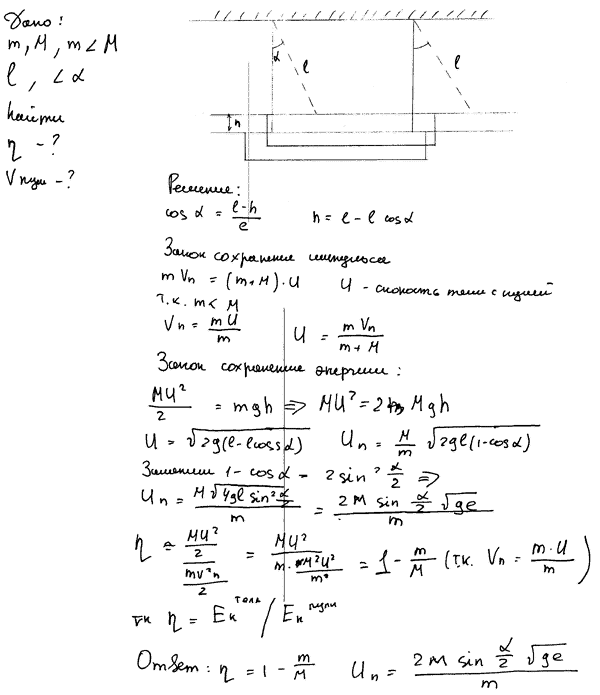 Дано:
m, M, m < M
l, ∠α
Найти
η - ?
Vпули - ?
α
l
l
h
Решение:
cos α = (l-h)/l    h = l - l cos α
Закон сохранение импульса
m Vп = (m+M)·U    U - скорость тела с пулей
т.к. m < M
Vп = mU/m    U = mVп/(m+M)
Закон сохранение энергии:
MU²/2 = mgh => MU² = 2Mgh
U = √2g(l-lcosα)    Uп = M/m √2gl(1-cosα)
Заменим 1-cosα = 2sin² α/2 =>
Uп = M√4gl sin² α/2 / m = 2M sin α/2 √gl / m
η ≈ (MU²/2)/(mv²п/2) = MU²/(m·M²U²/m²) = 1 - m/M (т.к. Vп = m·U/m)
η = Eк тела / Eк пули
Ответ: η = 1 - m/M    Uп = 2M sin α/2 √gl / m